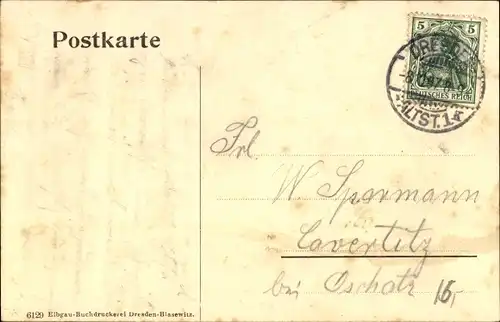 Postkarte
5
DEUTSCHES REICH
DRESDEN
ALTST. 1
Frl.
W Spormann
Lavertitz
bei Oschatz
16,-
6129 Elbgau-Buchdruckerei Dresden-Blasewitz.